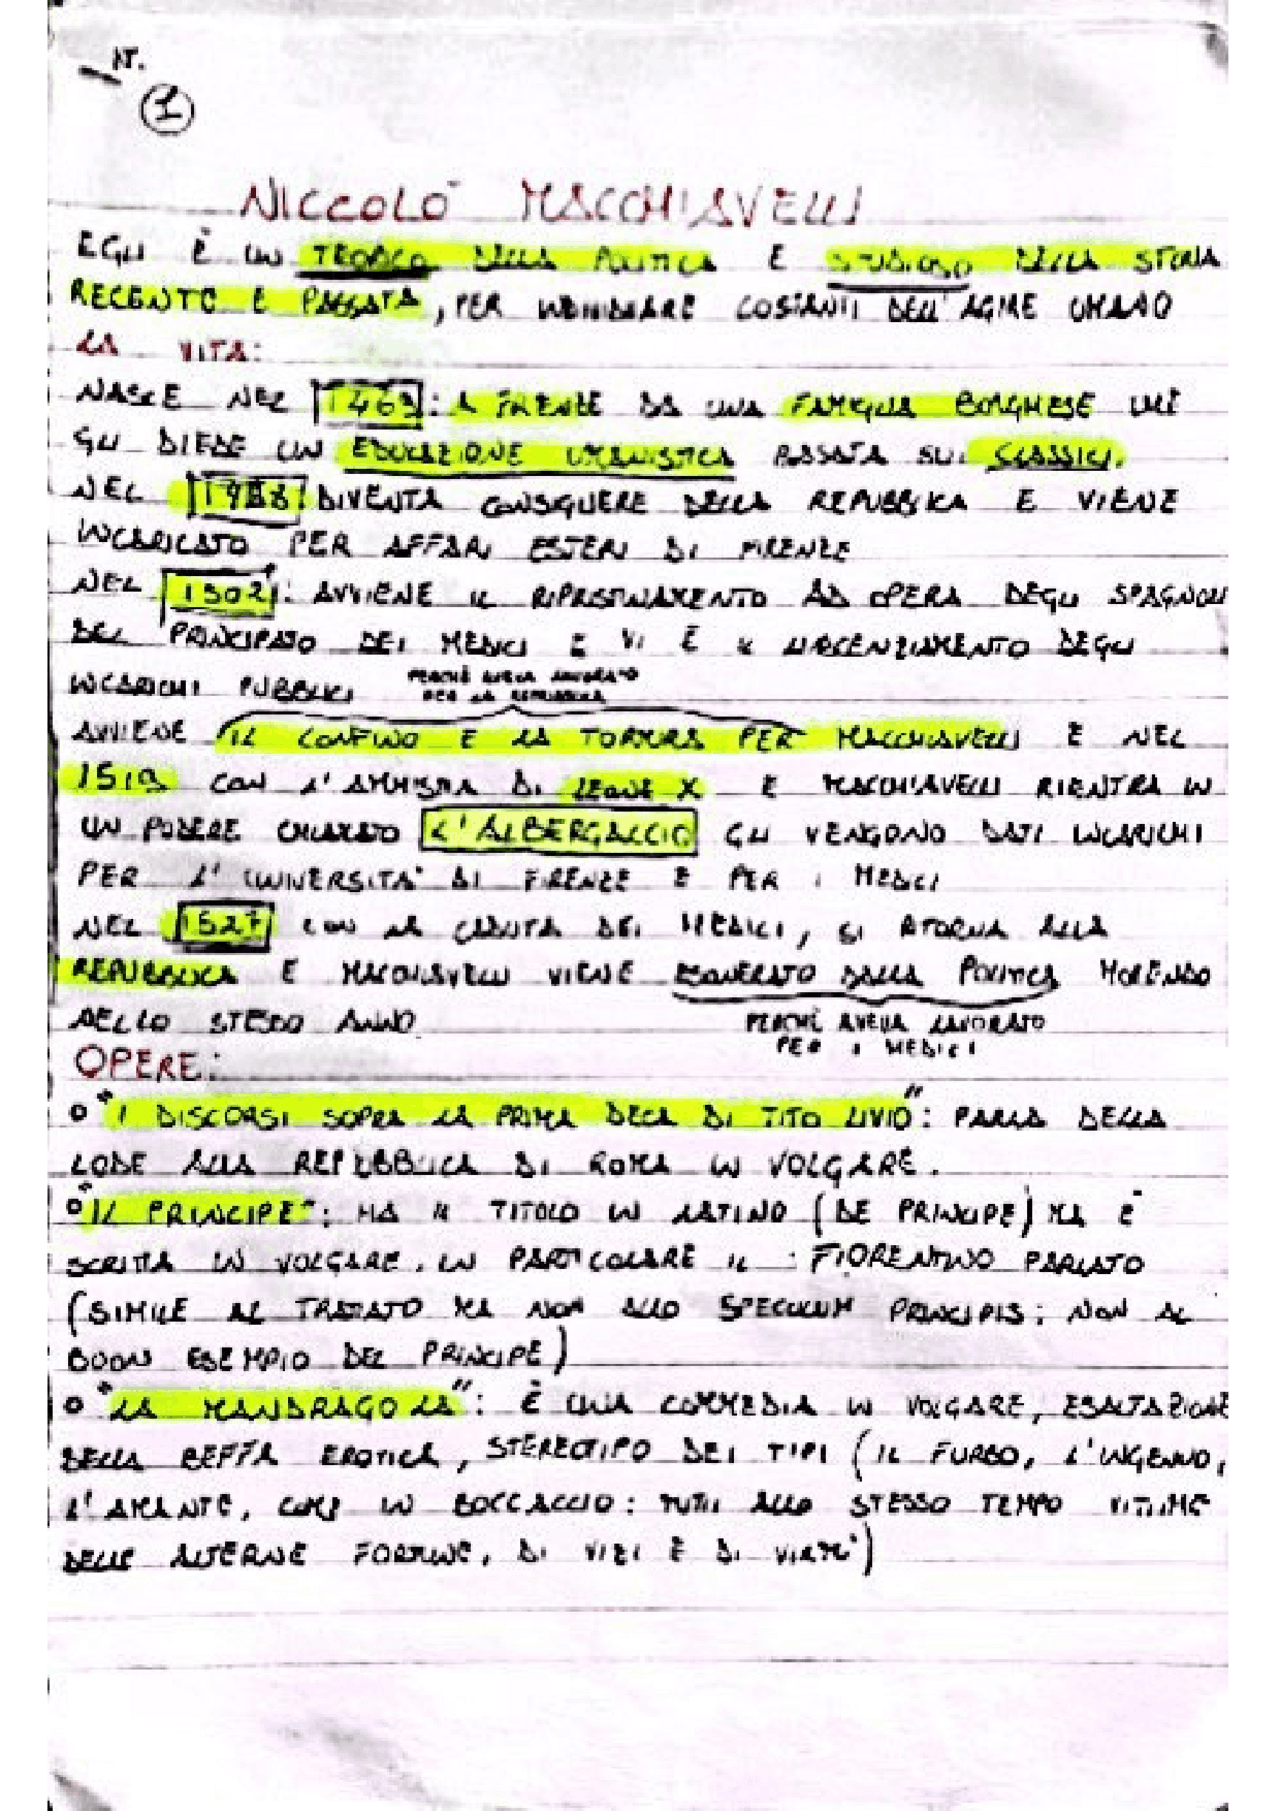 N.
1
NICCOLÒ MACCHIAVELLI
EGLI È UN TEORICO DELLA POLITICA E STUDIOSO DELLA STORIA
RECENTE E PASSATA, PER INDIVIDUARE COSTANTI DELL'AGIRE UMANO
LA VITA:
NASCE NEL 1469: A FIRENZE DA UNA FAMIGLIA BORGHESE CHE
GLI DIEDE UN EDUCAZIONE UMANISTICA BASATA SUI CLASSICI.
NEL DIVENTA CONSIGLIERE DELLA REPUBBLICA E VIENE
INCARICATO PER AFFARI ESTERI DI FIRENZE
NEL : AVVIENE IL RIPRISTINAMENTO AD OPERA DEGLI SPAGNOLI
DEL PRINCIPATO DEI MEDICI E VI È IL LICENZIAMENTO DEGLI
INCARICHI PUBBLICI PERCHÈ AVEVA LAVORATO
PER LA REPUBBLICA
AVVIENE IL CONFINO E LA TORTURA PER MACCHIAVELLI E NEL
CON L'AMNISTIA DI LEONE X E MACCHIAVELLI RIENTRA IN
UN PODERE CHIAMATO L'ALBERGACCIO GLI VENGONO DATI INCARICHI
PER L'UNIVERSITA' DI FIRENZE E PER I MEDICI
NEL 1527 CON LA CADUTA DEI MEDICI, SI RITORNA ALLA
REPUBBLICA E MACCHIAVELLI VIENE ESONERATO DALLA POLITICA MORENDO
NELLO STESSO ANNO PERCHÈ AVEVA LAVORATO
PER I MEDICI
OPERE:
o "I DISCORSI SOPRA LA PRIMA DECA DI TITO LIVIO": PARLA DELLA
LODE ALLA REPUBBLICA DI ROMA IN VOLGARE.
o "IL PRINCIPE": HA IL TITOLO IN LATINO (DE PRINCIPE) MA È
SCRITTA IN VOLGARE, IN PARTICOLARE IL : FIORENTINO PARLATO
(SIMILE AL TRATTATO MA NON ALLO SPECULUM PRINCIPIS: NON AL
BUON ESEMPIO DEL PRINCIPE)
o "LA MANDRAGOLA": È UNA COMMEDIA IN VOLGARE, ESALTAZIONE
DELLA BEFFA EROTICA, STEREOTIPO DEI TIPI (IL FURBO, L'INGENUO,
L'AMANTE, COME IN BOCCACCIO: TUTTI ALLO STESSO TEMPO VITTIME
DELLE ALTERNE FORTUNE, DI VIZI E DI VIRTU')